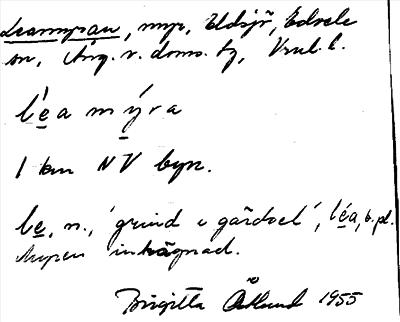 Leamyran, myr, Eldsjö, Edsele
sn, Ång. v. doms. tg, Vnl. l.
léa mýra
1 km NV byn.
le, n., 'grind i gärdsel', léa, b. pl.
Myren inhägnad.
Birgitta Åklund 1955